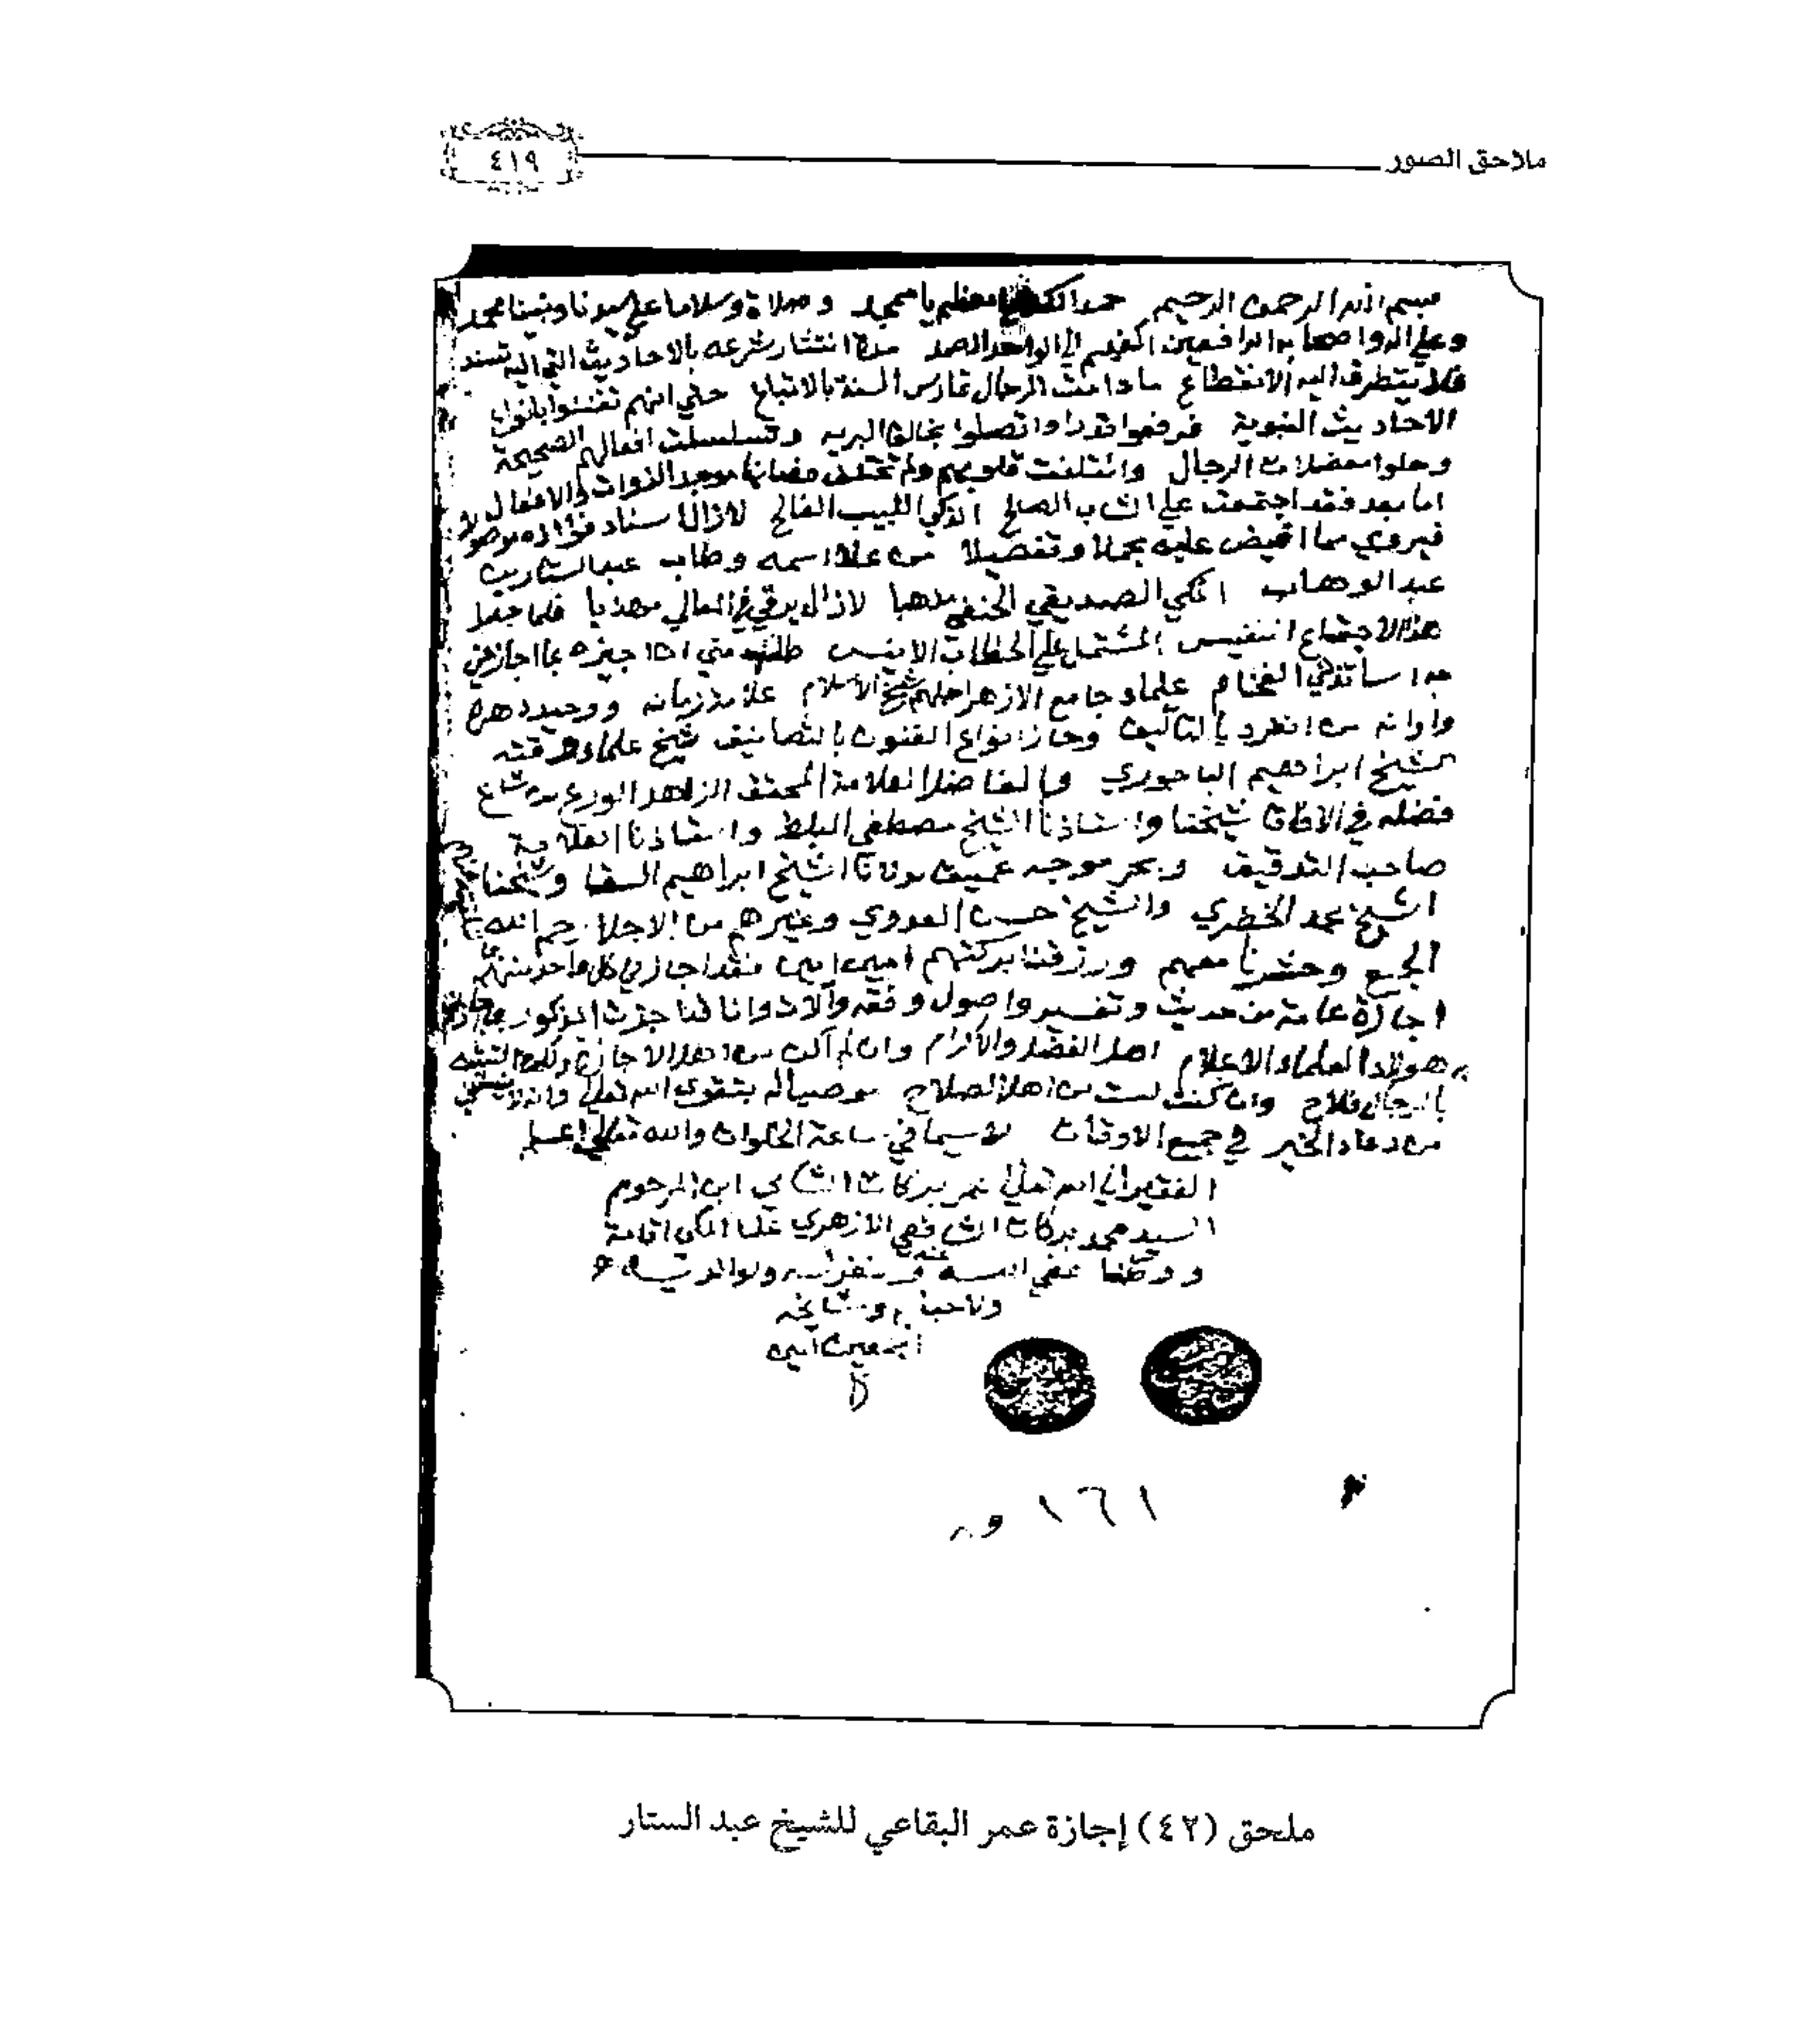 ملاحق الصور
٤١٩
بسم الله الرحمن الرحيم حمدا لك يا عظيم يا مجيد وصلاة وسلاما على سيدنا ونبينا محمد
وعلى اله واصحابه الرافعين اكفهم الى الواحد الصمد مدة انتشار شرعه بالاحاديث التي اليه تسند
فلا يتطرق اليه الانقطاع ما دامت الرجال تمارس السنة بالاتباع حتى انهم تفننوا بانواع
الاحاديث النبوية فرفعوا قدرا واتصلوا بخالق البريه وتسلسلت افعالهم الصحيحة
وحلوا معضلات الرجال وائتلفت قلوبهم ولم تختلف موجد الذوات والافعال
اما بعد فقد اجتمعت على الشاب الصالح الذكي اللبيب الفالح لازال اسناد فؤاده موصولا
فيروي ما افيض عليه مجملا وتفصيلا من علا اسمه وطاب عبد الستار بن
عبد الوهاب المكي الصديقي الحنفي مذهبا لازال يرقى في المعالي مهذبا فلما حصل
هذا الاجتماع النفيس المشتمل على الخطاب الانيس طلب مني ان اجيزه بما اجازني
به اساتذتي الفخام علماء جامع الازهر اجلهم شيخ الاسلام علامة زمانه ووحيد دهره
واوانه من انفرد بالتآليف وحاز انواع الفنون بالتصانيف شيخ علماء وقته
الشيخ ابراهيم الباجوري والفاضل العلامة المحقق الزاهد الورع من شاع
فضله في الافاق شيخنا واستاذنا الشيخ مصطفى المبلط واستاذنا العلامة
صاحب التدقيق وبحر موجه عميق مولانا الشيخ ابراهيم السقا وشيخنا
الشيخ محمد الخضري والشيخ حسن العدوي وغيرهم من الاجلاء رحم الله
الجميع وحشرنا معهم ورزقنا بركتهم امين امين فقد اجازني كل واحد منهم
اجازة عامة من حديث وتفسير واصول وفقه وآلات وانا قد اجزت المذكور بما اجازني
به هولاء العلماء الاعلام اهل الفضل والاكرام وان لم اكن من اهل الاجازة ولكن التشبه
بالرجال فلاح وان كنت لست من اهل الصلاح موصيا له بتقوى الله تعالى وان لا ينساني
من دعاء الخير في جميع الاوقات لاسيما في ساعة الخلوات والله تعالى اعلم
الفقير الى الله تعالى عمر بركات الشامي ابن المرحوم
السيد محمد بركات الشافعي الازهري المكي اقامة
ووطنا عفى الله عنه وغفر له ولوالديه
ولاحبابه ومشايخه
اجمعين امين
ملحق (٤٢) إجازة عمر البقاعي للشيخ عبد الستار